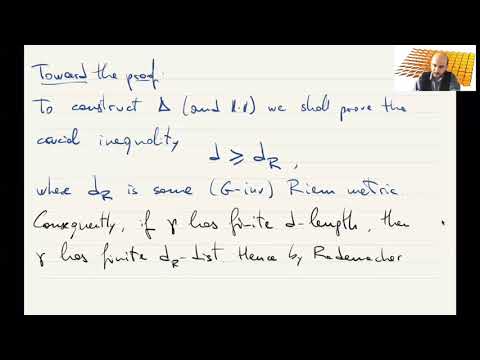 Toward the proof:
To construct Δ (and ‖·‖) we shall prove the
crucial inequality
d ⩾ d_R ,
where d_R is some (G-inv) Riem metric.
Consequently, if γ has finite d-length, then
γ has finite d_R-dist. Hence by Rademacher